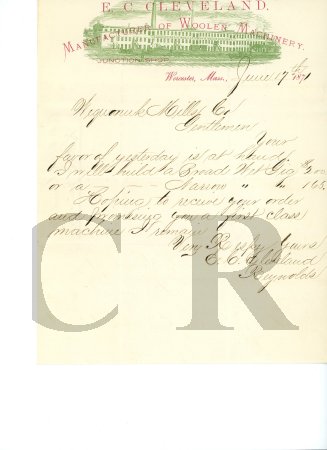 E. C. CLEVELAND,
MANUFACTURER OF WOOLEN MACHINERY.
JUNCTION SHOP
Worcester, Mass., June 17th 1871
Wequonuk Mills Co
Gentlemen
Your
favor of yesterday is at hand
I will build a Broad Wet Gig $200
or a Narrow " " 165.
Hoping to receive your order
and promising you a first class
machine I remain
Very Respy Yours
E. C. Cleveland
Reynolds
CR